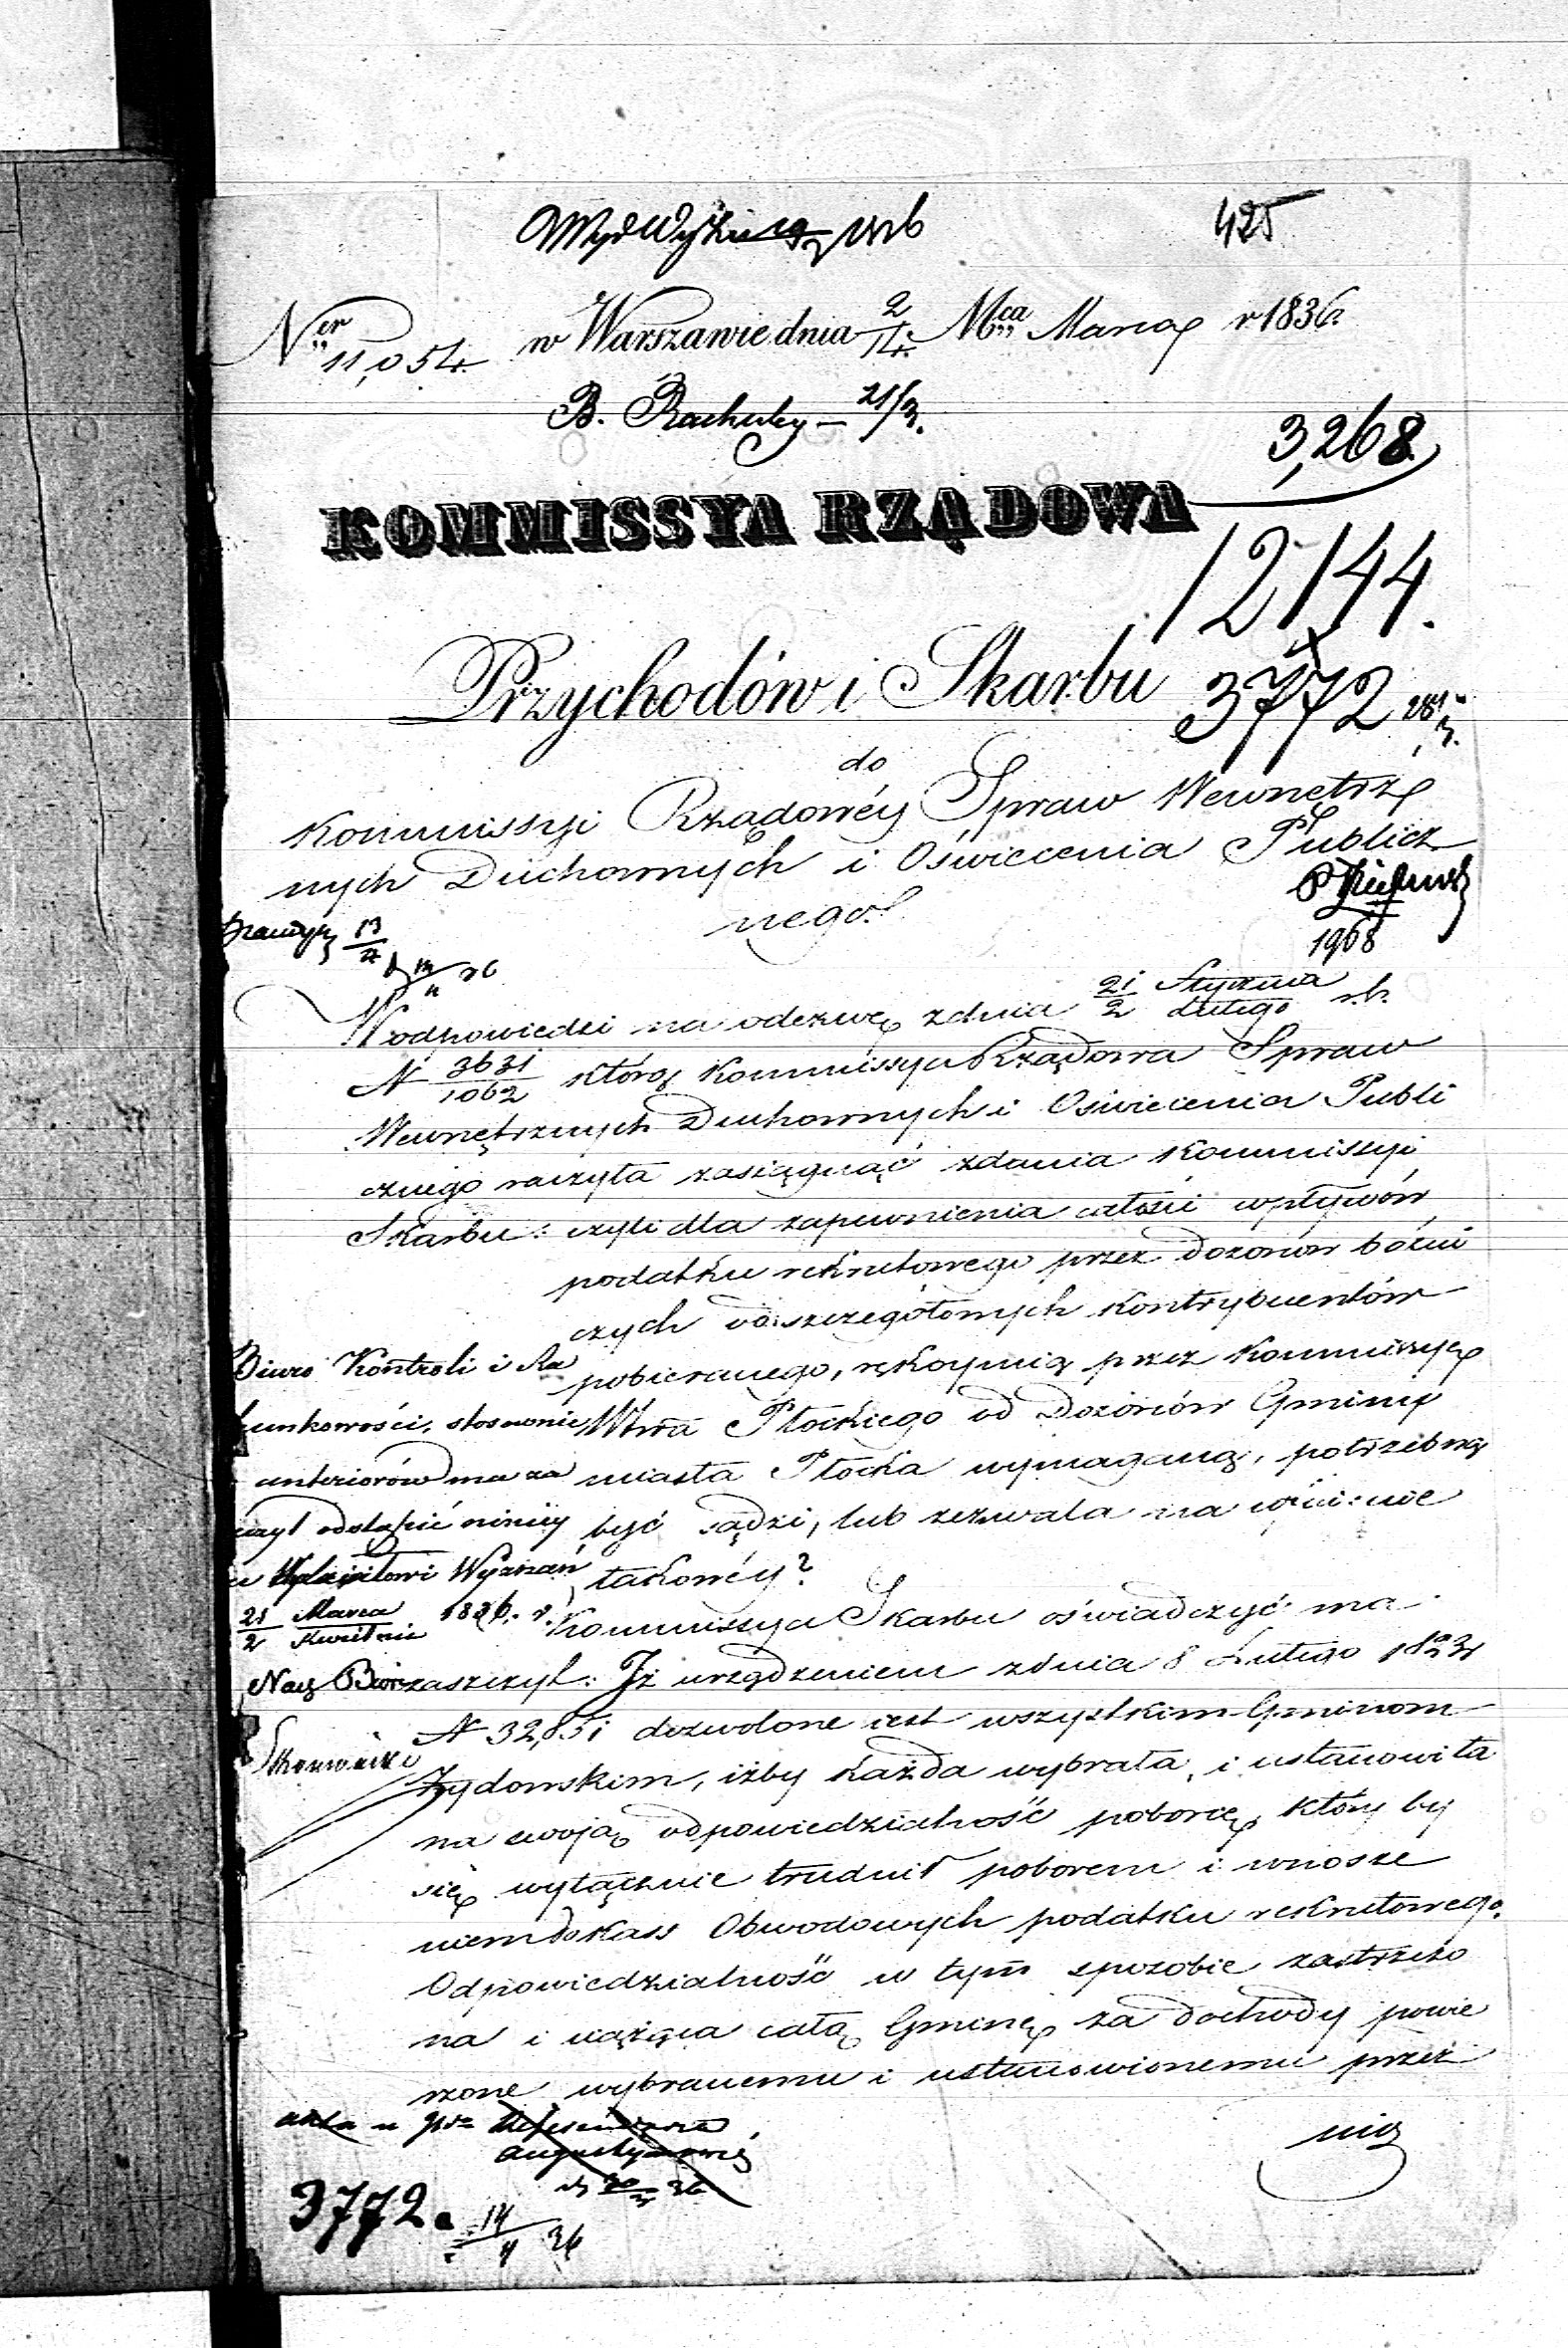 425
Ner 11,054. w Warszawie dnia 2/14. Mca Marca r 1836.
B. Rachuby — 21/3.
3,268.
KOMMISSYA RZĄDOWA
12144.
Przychodów i Skarbu
3772 28/3.
do
Kommissyi Rządowéy Spraw Wewnętrz
nych Duchownych i Oświecenia Publicz
nego.
1968
13/4
W odpowiedzi na odezwę z dnia 21 Stycznia / 2 Lutego r.b.
N 3631/1062 którą Kommissya Rządowa Spraw
Wewnętrznych Duchownych i Oświecenia Publi
cznego raczyła zasiągnąć zdania Kommissyi
Skarbu: czyli dla zapewnienia całości wpływów
podatku rekrutowego przez dozorów bóźni
czych od szczegółowych kontrybuentów
pobieranego, rękoymią przez Kommissyę
Wwa Płockiego od Dozorców Gminy
miasta Płocka wymaganą, potrzebną
być sądzi, lub zezwala na
takowéy?
Biuro Kontroli i Ra
hunkowości, stosownie
anteriorów ma za
szczyt odstąpić niniiey
Wydziałowi Wyznań
21 Marca / 2 Kwietnia 1836. r.
Nacz Biura
Kommissya Skarbu oświadczyć ma
zaszczyt: Iż urządzeniem z dnia 8 Lutego 1823
N 32,851 dozwolone iest wszystkim Gminom
Żydowskim, iżby każda wybrała, i ustanowiła
na swoją odpowiedzialność poborcę, który by
się wyłącznie trudnił poborem i wnosze
niem do Kass Obwodowych podatku rekrutowego.
Odpowiedzialność w tym sposobie zastrzeżo
na i ciążąca całą Gminę za dochody powie
rzone wybranemu i ustanowionemu przez
nią
3772. 14/4 36